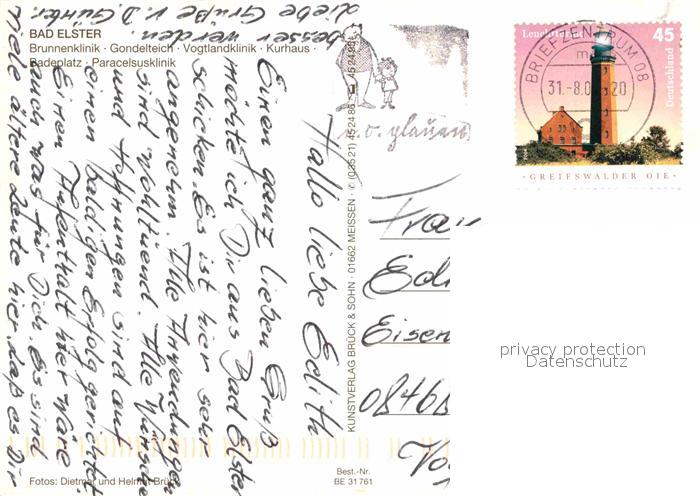 BAD ELSTER
Brunnenklinik · Gondelteich · Vogtlandklinik · Kurhaus ·
Badeplatz · Paracelsusklinik
Hallo liebe Edith
Einen ganz lieben Gruß
möchte ich Dir aus Bad Elster
schicken. Es ist hier sehr
angenehm. Alle Anwendungen
sind wohltuend. Alle Wünsche
und Hoffnungen sind auf
einen baldigen Erfolg gerichtet.
Einen Aufenthalt hier wäre
auch was für Dich. Es sind
viele ältere Leute hier, daß es Dir
besser werden.
liebe Grüße v. D. Günter.
KUNSTVERLAG BRÜCK & SOHN · 01662 MEISSEN · (0 35 21) 45 24 86
Leuchtturm
45
Deutschland
BRIEFZENTRUM 08
31.-8.0
20
·GREIFSWALDER OIE·
Frau
Edi
Eisen
08468
Vo
privacy protection
Datenschutz
Fotos: Dietmar und Helmut Brück
Best.-Nr.
BE 31761